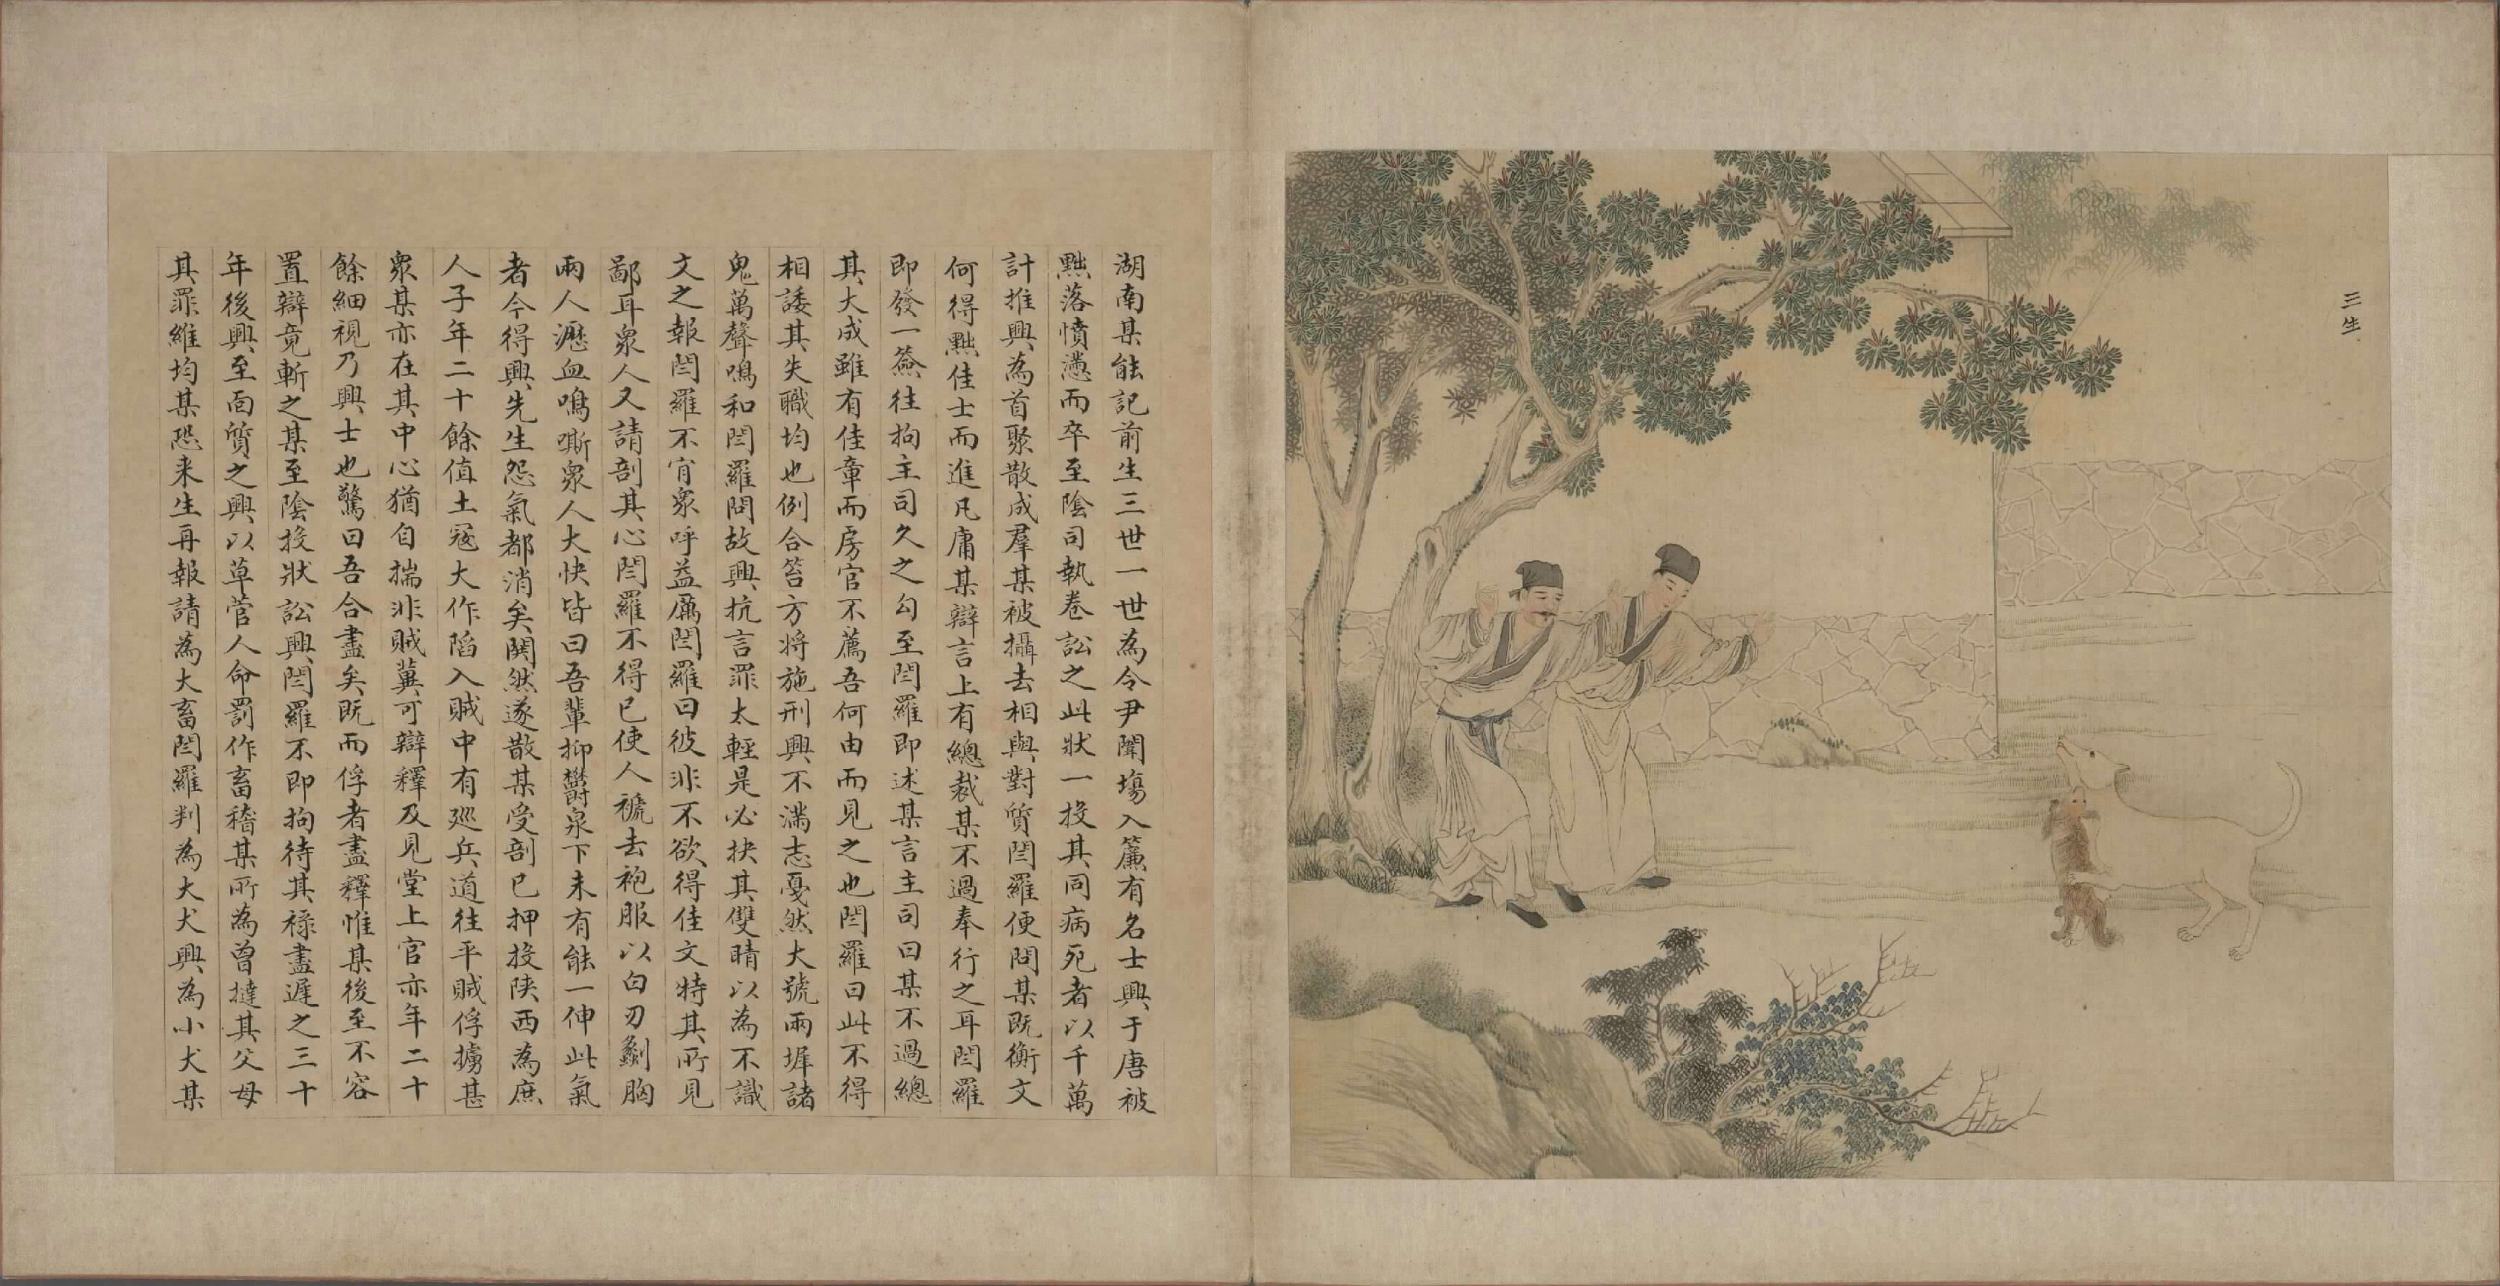 三生
湖南某能記前生三世一世為令尹闈場入簾有名士興于唐被
黜落憤懣而卒至陰司執卷訟之此狀一投其同病死者以千萬
計推興為首聚散成羣某被攝去相與對質閻羅便問某既衡文
何得黜佳士而進凡庸某辯言上有總裁某不過奉行之耳閻羅
即發一簽往拘主司久之勾至閻羅即述某言主司曰某不過總
其大成雖有佳章而房官不薦吾何由而見之也閻羅曰此不得
相諉其失職均也例合笞方將施刑興不滿志戛然大號兩墀諸
鬼萬聲鳴和閻羅問故興抗言罪太輕是必抉其雙睛以為不識
文之報閻羅不肯眾呼益厲閻羅曰彼非不欲得佳文特其所見
鄙耳眾人又請剖其心閻羅不得已使人褫去袍服以白刃劙胸
兩人瀝血鳴嘶眾人大快皆曰吾輩抑鬱泉下未有能一伸此氣
者今得興先生怨氣都消矣鬨然遂散某受剖已押投陝西為庶
人子年二十餘值土寇大作陷入賊中有巡兵道往平賊俘擄甚
眾某亦在其中心猶自揣非賊冀可辯釋及見堂上官亦年二十
餘細視乃興士也驚曰吾合盡矣既而俘者盡釋惟某後至不容
置辯竟斬之某至陰投狀訟興閻羅不即拘待其祿盡遲之三十
年後興至面質之興以草菅人命罰作畜稽某所為曾撻其父母
其罪維均某恐來生再報請為大畜閻羅判為大犬興為小犬某